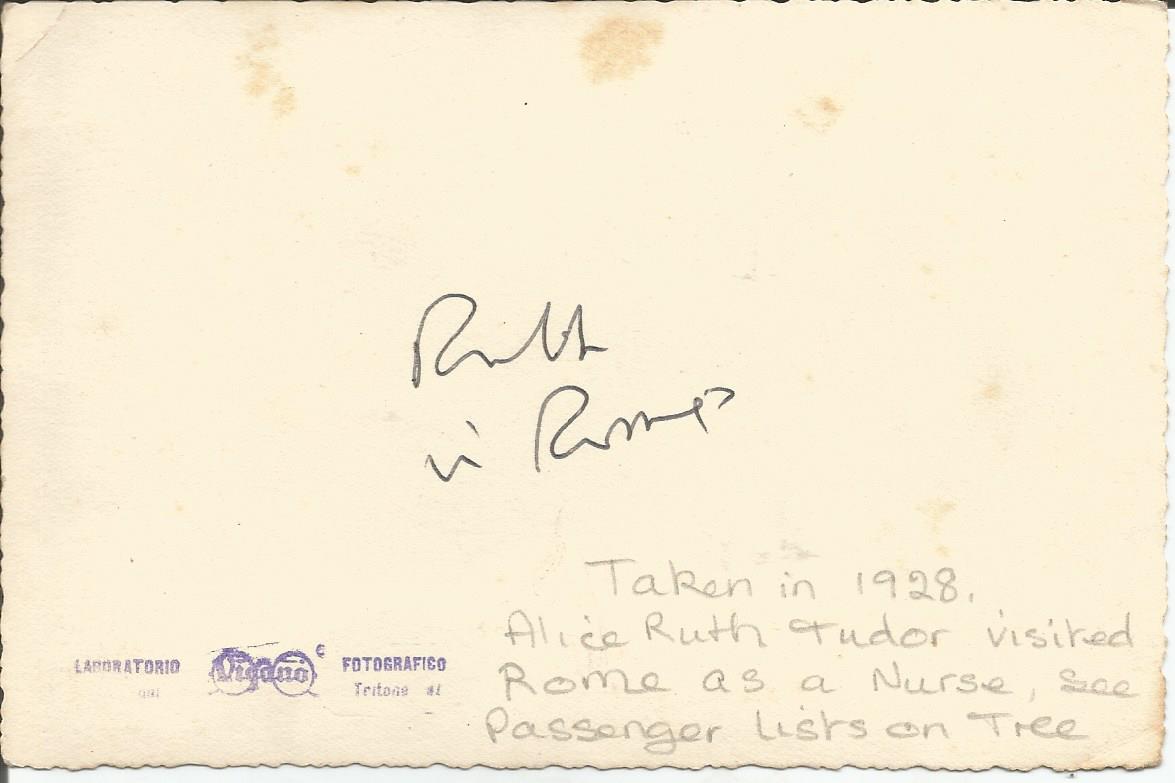 Ruth
in Rome
Taken in 1928.
Alice Ruth Tudor visited
Rome as a Nurse, see
Passenger lists on Tree
LABORATORIO Vigano FOTOGRAFICO
Tritone